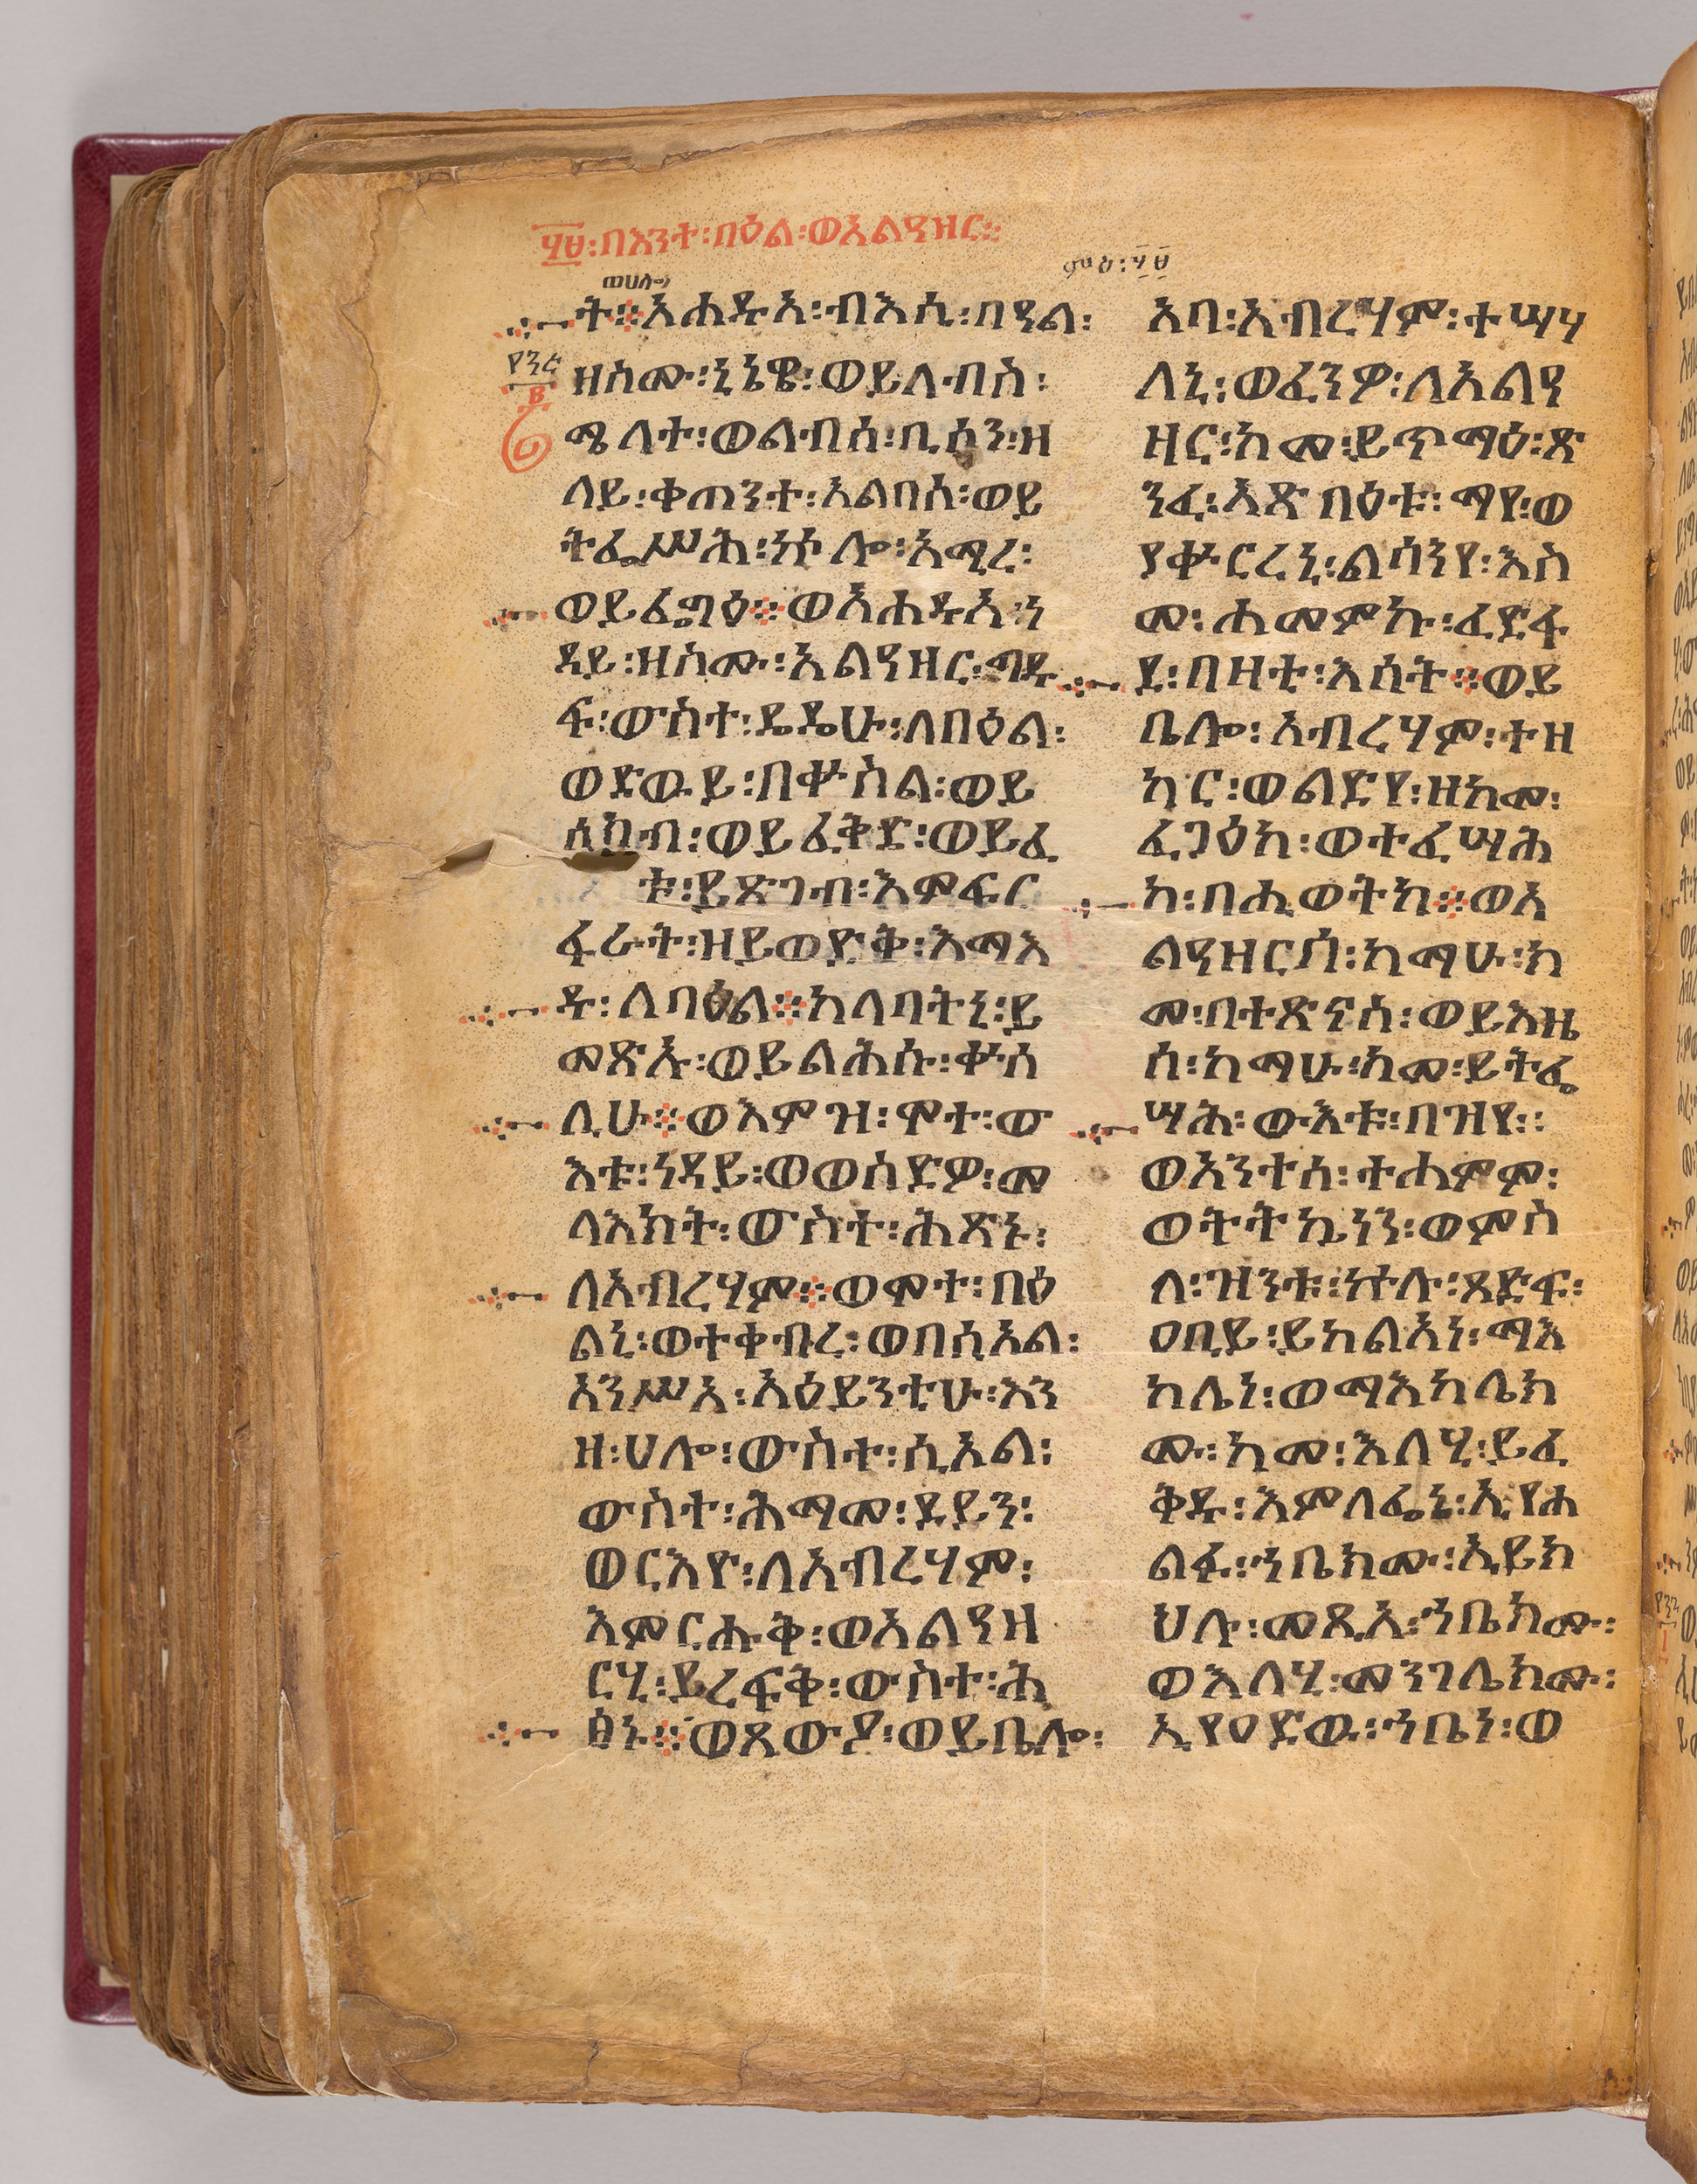 ፷፱፡በእንተ፡በዕል፡ወአልዓዛር፡፡
ወሀሎ
ት፨አሐዱአ፡ብእሲ፡በዓል፡
ዘስሙ፡ኒኔዌ፡ወይለብስ፡
ሜላተ፡ወልብሰ፡ቢሶን፡ዘ
ለይ፡ቀጠንተ፡አልባሰ፡ወይ
ትፌሥሕ፡ኵሎ፡አሚረ፡
ወይፌግዕ፨ወአሐዱአ፡ነ
ዳይ፡ዘስሙ፡አልዓዘር፡ግዱ
ፍ፡ውስተ፡ዴዴሁ፡ለበዕል፡
ወድዉይ፡በቍስል፡ወይ
ሰክብ፡ወይፈቅድ፡ወይፈ
ቱ፡ይጽገብ፡እምፍር
ፋራት፡ዘይወድቅ፡እማእ
ዱ፡ለባዕል፨ከላባትኒ፡ይ
መጽኡ፡ወይልሕሱ፡ቍስ
ሊሁ፨ወእምዝ፡ሞተ፡ው
እቱ፡ነዳይ፡ወወስድዎ፡መ
ላእክት፡ውስተ፡ሕጽኑ፡
ለአብረሃም፨ወሞተ፡በዕ
ልኒ፡ወተቀብረ፡ወበሲኦል፡
አንሥአ፡አዕይንቲሁ፡እን
ዘ፡ሀሎ፡ውስተ፡ሲኦል፡
ውስተ፡ሕማመ፡ደይን፡
ወርእዮ፡ለአብረሃም፡
እምርሑቅ፡ወአልዓዘ
ርሃ፡ይረፍቅ፡ውስተ፡ሕ
ፅኑ፨ወጸውዖ፡ወይቤሎ፡
ምዕ፡፷፱
አባ፡አብረሃም፡ተሣሃ
ለኒ፡ወፈንዎ፡ለአልዓ
ዘር፡ከመ፡ይጥማዕ፡ጽ
ንፈ፡አጽበዕቱ፡ማየ፡ወ
ያቍርረኒ፡ልሳንየ፡እስ
መ፡ሐመምኩ፡ፈድፋ
ደ፡በዛቲ፡እሳት፨ወይ
ቤሎ፡አብረሃም፡ተዘ
ካር፡ወልድየ፡ዘከመ፡
ፈገዕከ፡ወተፈሣሕ
ከ፡በሕይወትከ፨ወአ
ልዓዘርሰ፡ከማሁ፡ከ
መ፡በተጽናስ፡ወይእዜ
ሰ፡ከማሁ፡ከመ፡ይትፌ
ሣሕ፡ውእቱ፡በዝየ፡፡
ወአንተሰ፡ተሐምም፡
ወትትኴነን፡ወምስ
ለ፡ዝንቱ፡ኵሉ፡ጸድፍ፡
ዐቢይ፡ይከልአነ፡ማእ
ከሌነ፡ወማእከሌክ
ሙ፡ከመ፡እለሂ፡ይፈ
ቅዱ፡እምለፌኒ፡ኢየሐ
ልፉ፡ኀቤክሙ፡ኢይክ
ህሉ፡መጺአ፡ኀቤክሙ፡
ወእለሂ፡መንገሌክሙ፡
ኢየዐድዉ፡ኀቤነ፡ወ